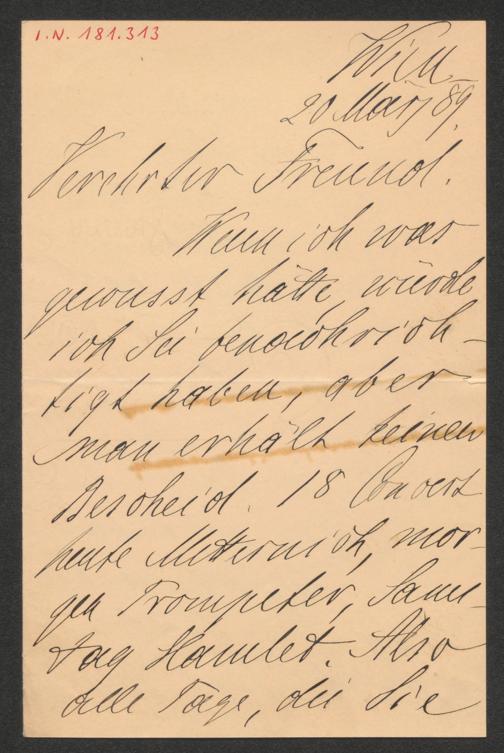 I.N. 181.313
Wien
20 März 89.
Verehrter Freund.
Wenn ich was
gewusst hätte, würde
ich Sie benachrich-
tigt haben, aber
man erhält keinen
Bescheid. 18 Concert
heute Metternich, mor-
gen Trompeter, Sams-
tag Hamlet. Also
alle Tage, die Sie